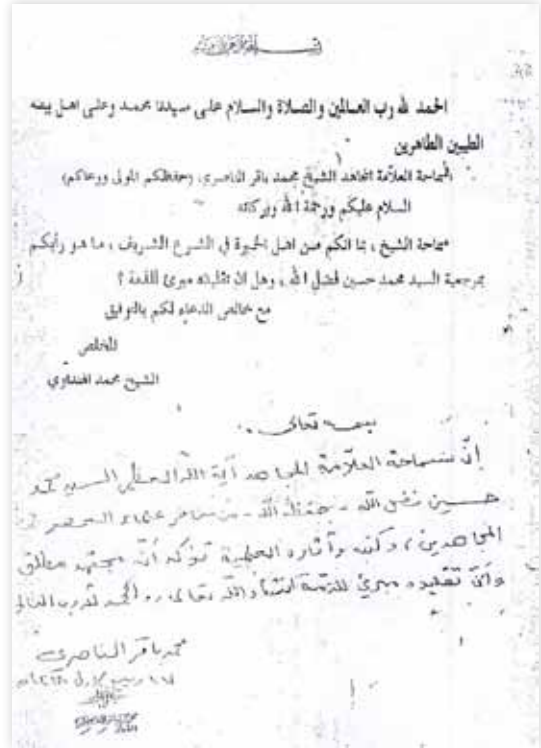 بسم الله الرحمن الرحيم
الحمد لله رب العالمين والصلاة والسلام على سيدنا محمد وعلى اهل بيته
الطيبين الطاهرين
سماحة العلامة المجاهد الشيخ محمد باقر الناصري، (حفظكم المولى ورعاكم)
السلام عليكم ورحمة الله وبركاته
سماحة الشيخ، بما انكم من اهل الخبرة في الشرع الشريف، ما هو رأيكم
بمرجعية السيد محمد حسين فضل الله، وهل ان تقليده مبرئ للذمة؟
مع خالص الدعاء لكم بالتوفيق
المخلص
الشيخ محمد
بسمه تعالى
إنّ سماحة العلامة المجاهد آية الله العظمى السيد محمد
حسين فضل الله - حفظه الله - من علماء العصر
المجاهدين، وكتبه وآثاره العلمية تؤكد أنّه مجتهد مطلق
وأنّ تقليده مبرئ للذمة إنشاء الله تعالى، والحمد لله رب العالمين
محمد باقر الناصري
ربيع الأول